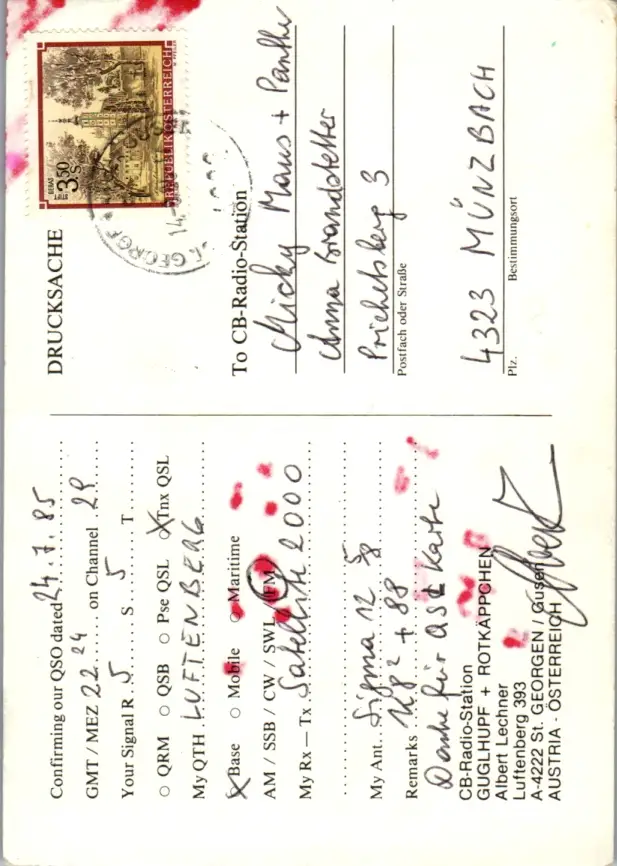 Confirming our QSO dated 24.7.85
GMT / MEZ 22.24 on Channel 29
Your Signal R 5 S 5 T
○ QRM ○ QSB ○ Pse QSL ○ Tnx QSL
My QTH LUFTENBERG
Base ○ Mobile ○ Maritime
AM / SSB / CW / SWL / FM
My Rx — Tx Satellit 2000
My Ant. Sigma 12 5/8
Remarks 18² + 88
Danke für QSL Karte
CB-Radio-Station
GUGLHUPF + ROTKÄPPCHEN
Albert Lechner
Luftenberg 393
A-4222 St. GEORGEN / Gusen
AUSTRIA - ÖSTERREICH
DRUCKSACHE
S 3.50
REPUBLIK ÖSTERREICH
ST. GEORGEN
To CB-Radio-Station
Micky Maus + Panther
Anna Brandstetter
Priehetsberg 3
Postfach oder Straße
4323 MÜNZBACH
Plz. Bestimmungsort